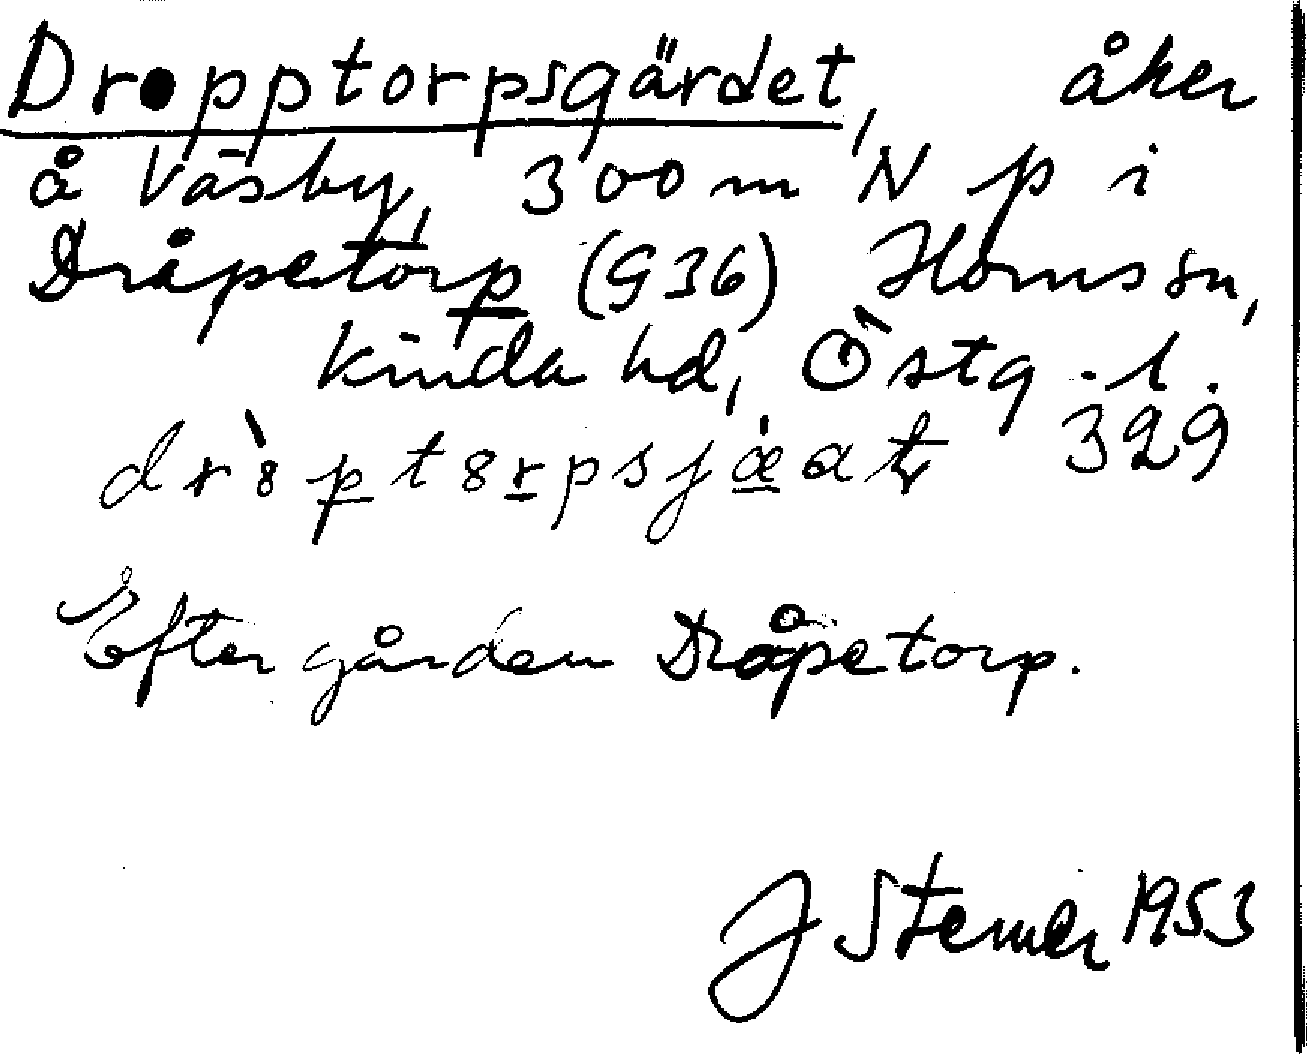 Dropptorpsgärdet, åker
å Väsby, 300 m N p i
Dråpetorp (936) Horns sn,
Kinda hd, Östg.l.
329
Efter gården Dråpetorp.
J Sterner 1953